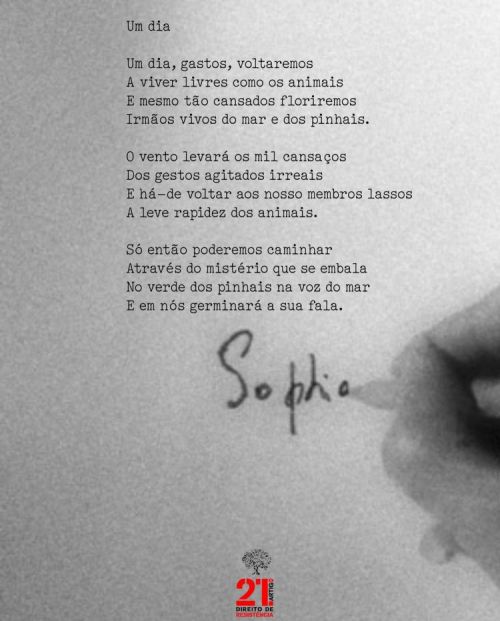 Um dia
Um dia, gastos, voltaremos
A viver livres como os animais
E mesmo tão cansados floriremos
Irmãos vivos do mar e dos pinhais.
O vento levará os mil cansaços
Dos gestos agitados irreais
E há-de voltar aos nosso membros lassos
A leve rapidez dos animais.
Só então poderemos caminhar
Através do mistério que se embala
No verde dos pinhais na voz do mar
E em nós germinará a sua fala.
Sophia
21
ARTIGO
DIREITO DE
RESISTÊNCIA